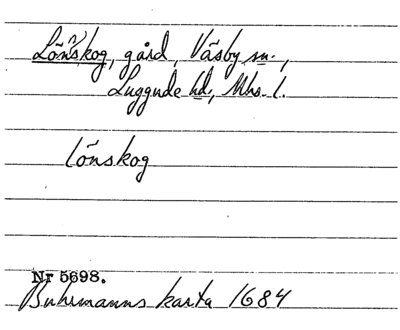 Lönskog, gård, Väsby sn.,
Luggude hd., Mhs. l.
lönskog
Nr 5698.
Buhrmanns karta 1684